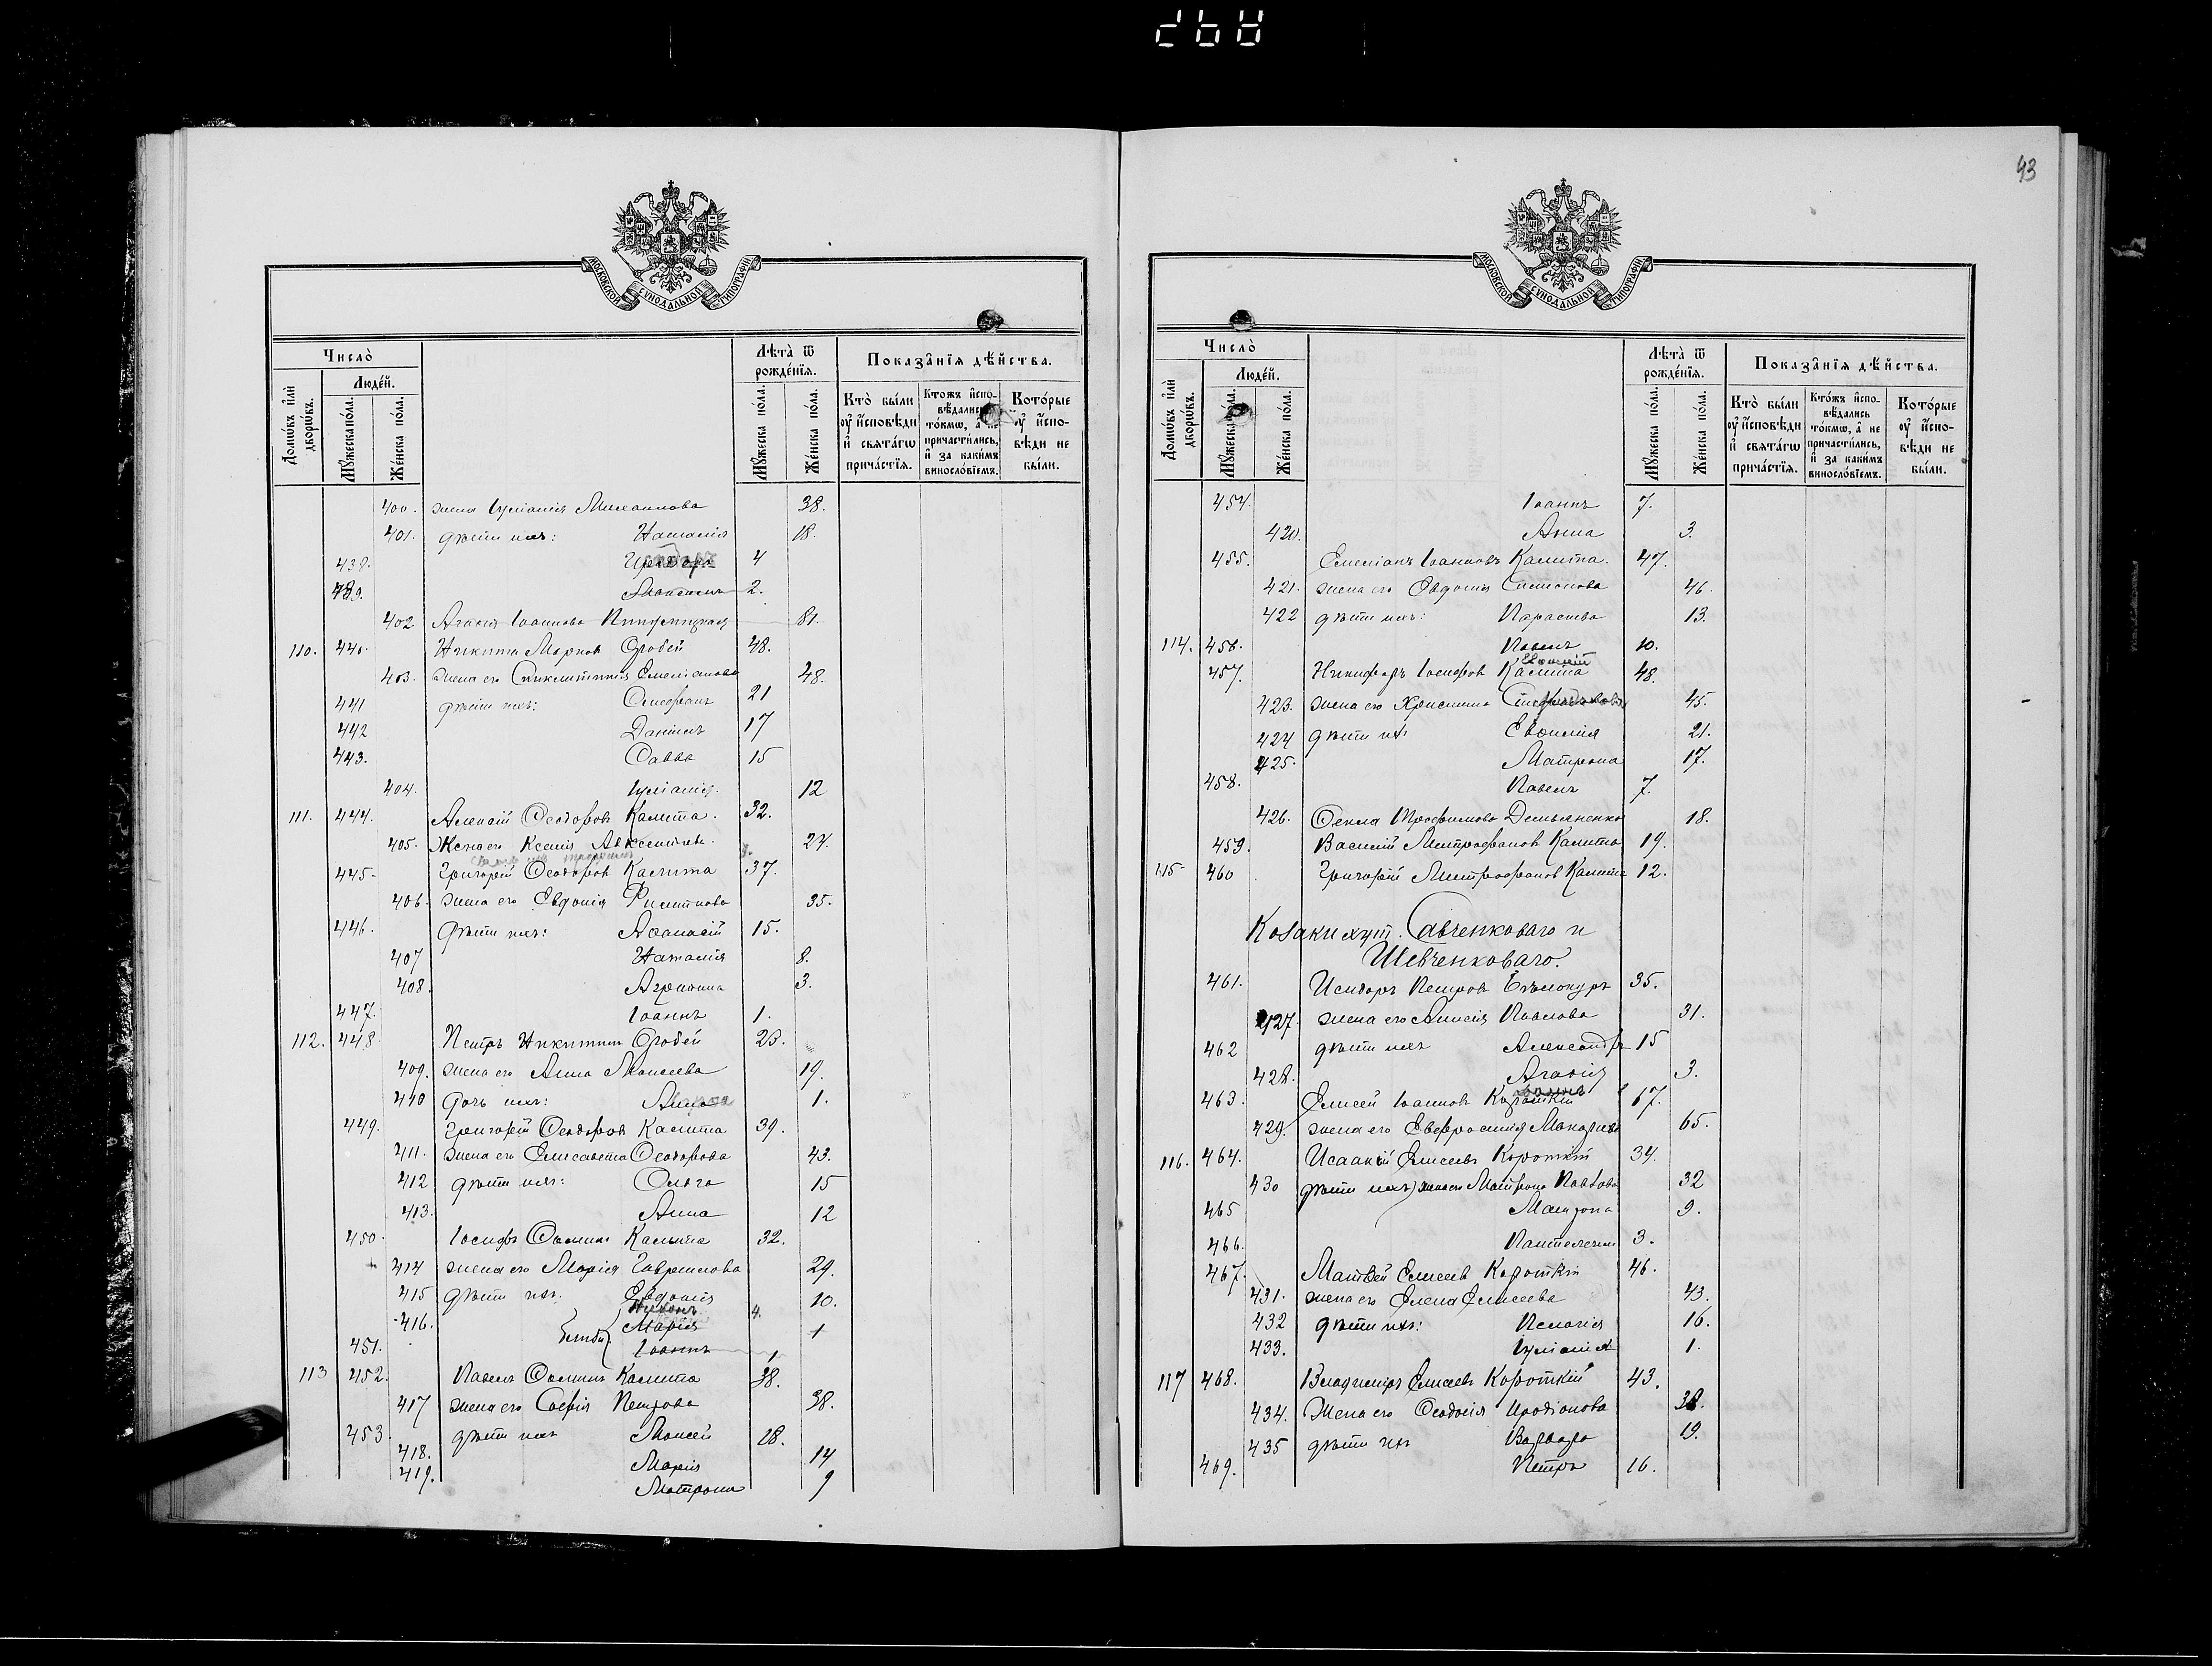 43
МОСКОВСКОЙ СѴНОДАЛЬНОЙ ТИПОГРАФІИ
Число̀
Домѡ́въ и҆лѝ дворѡ́въ.
Люде́й.
Мꙋ́жеска по́ла.
Же́нска по́ла.
Лѣ́та ѿ рожде́нїѧ.
Мꙋ́жеска по́ла.
Же́нска по́ла.
Показа̑нїѧ дѣ́йства.
Кто̀ бы́ли ᲂу҆ и҆сповѣди и҆ свѧта́гѡ прича́стїѧ.
Кто́жъ и҆сповѣдались то́кмѡ, а҆ не причасти́лись, и҆ за каки́мъ винословїемъ.
Кото́рые ᲂу҆ и҆сповѣди не бы́ли.
400. жена Іуліанія Михаилова 38.
401. дѣти ихъ: Наталія 18.
438. 4
439. Моисей 2.
402 Агаѳія Іоаннова 81.
110. 440. Никита Марковъ Сробей 48.
403. жена его Синклитикія Емеліанова 48.
441 дѣти ихъ: Стефанъ 21
442 Даніилъ 17
443. Савва 15
404. Іуліанія. 12
111. 444. Алексій Ѳеодоровъ Калита. 32.
405. Жена его Ксенія Авксентіева. 27.
445 Григорій Ѳеодоровъ Калита 37.
406. жена его Евдокія Филиппова 35.
446. дѣти ихъ: Аѳанасій 15.
407 Наталія 8.
408. Агрипина 3.
447. Іоаннъ 1.
112. 448. Петръ Никитинъ Сробей 23.
409. жена его Анна Моисеева 19.
410 дочь ихъ: Анна 1.
449. Григорій Ѳеодоровъ Калита 39.
411. жена его Елисавета Ѳеодорова 43.
412 дѣти ихъ: Ольга 15
413. Анна 12
450. Іосифъ Ѳоминъ Калита 32.
414 жена его Марія Гавриилова 29.
415 дѣти ихъ. Евдокія 10.
4.
416. Марія 1
451. Іоаннъ 1
113 452. Павелъ Ѳоминъ Калита 38.
417 жена его Софія Петрова 38.
453. дѣти ихъ Моисей 18.
418. Марія 14
419. Матрона 9
МОСКОВСКОЙ СѴНОДАЛЬНОЙ ТИПОГРАФІИ
Число̀
Домѡ́въ и҆лѝ дворѡ́въ.
Люде́й.
Мꙋ́жеска по́ла.
Же́нска по́ла.
Лѣ́та ѿ рожде́нїѧ.
Мꙋ́жеска по́ла.
Же́нска по́ла.
Показа̑нїѧ дѣ́йства.
Кто̀ бы́ли ᲂу҆ и҆сповѣди и҆ свѧта́гѡ прича́стїѧ.
Кто́жъ и҆сповѣдались то́кмѡ, а҆ не причасти́лись, и҆ за каки́мъ винословїемъ.
Кото́рые ᲂу҆ и҆сповѣди не бы́ли.
454. Іоаннъ 7.
420. Анна 3.
455. Емеліанъ Іоанновъ Калита. 47.
421. жена его Евдокія Симонова 46.
422 дѣти ихъ: Параскева 13.
114. 458. Павелъ 10.
457. Никифоръ Іосифовъ Калита 48.
423. жена его Христина 45.
424 дѣти их: Евфимія 21.
425. Матрона 17.
458. Павелъ 7.
426. Ѳекла Трофимова Демьяненко 18.
459. Василій Митрофановъ Калита 19.
115 460 Григорій Митрофановъ Калита 12.
Козаки хут. Савченковаго и
Шевченковаго.
461. Исидоръ Петровъ Бѣлокуръ 35.
427. жена его Анисія Павлова 31.
462 дѣти ихъ Александръ 15
428. Агаѳія 3.
463. Елисей Іоанновъ Короткій 67.
429. жена его Евфросинія Макаріева 65.
116. 464. Исаакій Елисеевъ Короткій 34.
430 дѣти ихъ) жена его Матрона Павлова 32
465 Матрона 9.
466. Пантелеимон 3.
467. Матвей Елисеевъ Короткій 46.
431. жена его Елена Елисеева 43.
432 дѣти ихъ: Пелагія 16.
433. Іуліанія 1.
117 468. Владиміръ Елисеевъ Короткій 43.
434. Жена его Ѳеодосія Иродіонова 38.
435 дѣти ихъ Варвара 19.
469. Петръ 16.